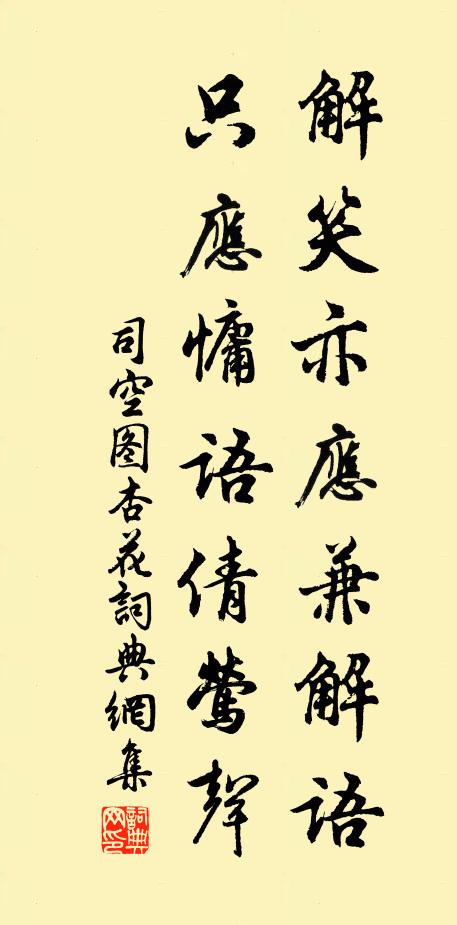 解笑亦應兼解語
只應慵語倩鶯聲
司空图杏花詞典網集
詞典
网印